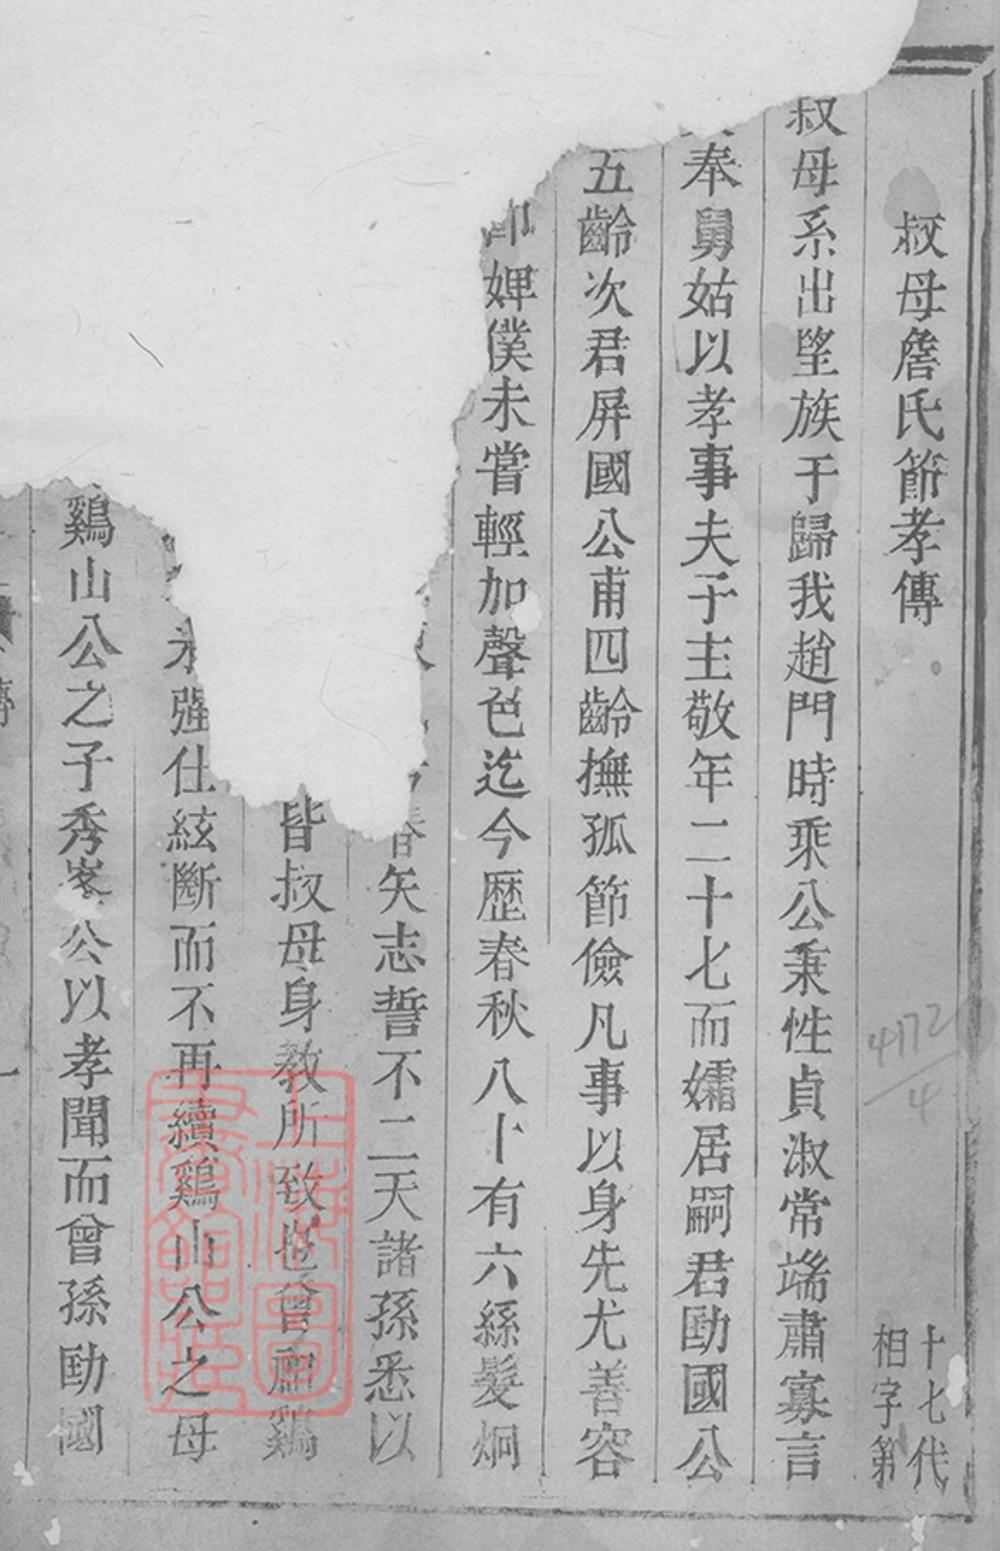 叔母詹氏節孝傳
十七代
相字第
叔母系出望族于歸我趙門時乘公秉性貞淑常端肅寡言
奉舅姑以孝事夫子主敬年二十七而孀居嗣君勛國公
五齡次君屏國公甫四齡撫孤節儉凡事以身先尤善容
婢僕未嘗輕加聲色迄今歷春秋八十有六絲髮炯
矢志誓不二天諸孫悉以
皆叔母身教所致也曾嗣鷄
强仕絃斷而不再續鷄山公之母
鷄山公之子秀峯公以孝聞而曾孫勛國
傳
一
4172/4
上海圖書館藏